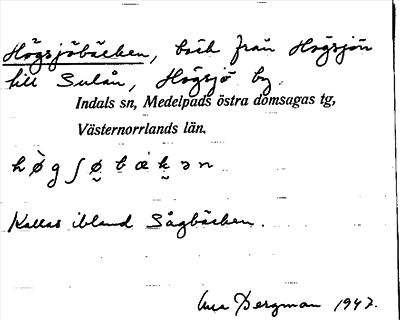 Högsjöbäcken, bäck från Högsjön
till Sulån, Högsjö by.
Indals sn, Medelpads östra domsagas tg,
Västernorrlands län.
Kallas ibland Sågbäcken.
Bergman 1947.